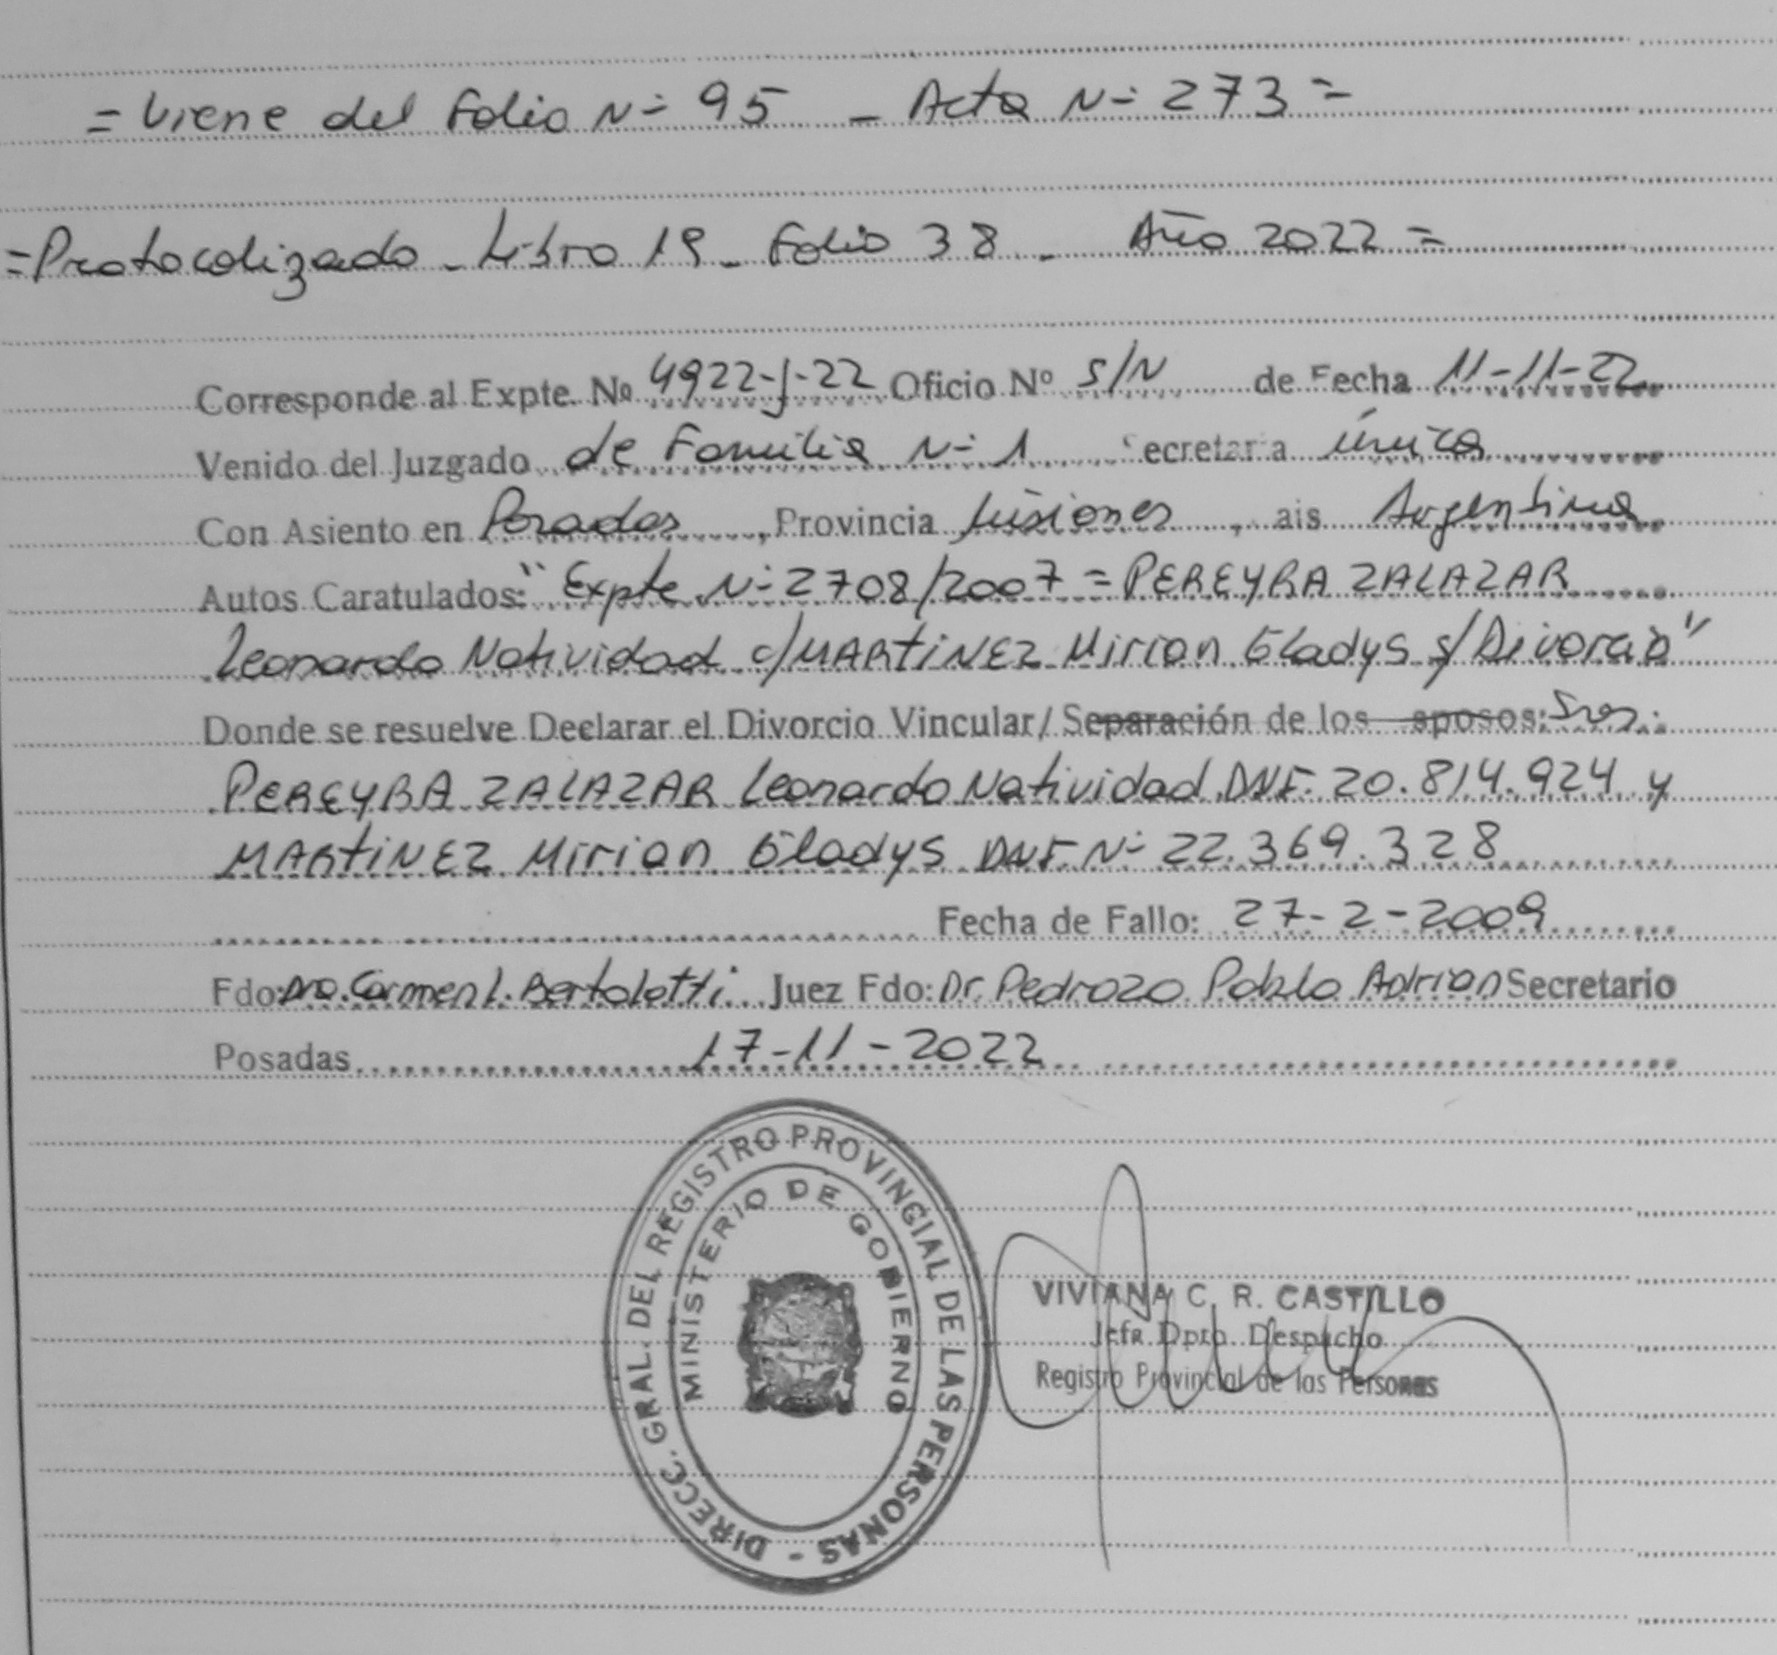 = Viene del Folio N- 95 - Acta N- 273 =
= Protocolizado - Libro 19 - Folio 38 - Año 2022 =
Corresponde al Expte. Nº 4922-J-22 Oficio Nº S/N de Fecha 11-11-22
Venido del Juzgado de Familia N- 1 ecretaria única
Con Asiento en Posadas, Provincia Misiones, ais Argentina
Autos Caratulados: "Expte N- 2708/2007 = PEREYRA ZALAZAR
Leonardo Natividad c/ MARTINEZ Mirian Gladys s/ Divorcio"
Donde se resuelve Declarar el Divorcio Vincular/ Separación de los sposos: Sres:
PEREYRA ZALAZAR Leonardo Natividad DNI. 20.814.924 y
MARTINEZ Mirian Gladys DNI. N- 22.369.328
Fecha de Fallo: 27-2-2009
Fdo: Dra. Carmen L. Bertolotti Juez Fdo: Dr. Pedrozo Pablo Adrian Secretario
Posadas 17-11-2022
DIRECC. GRAL. DEL REGISTRO PROVINCIAL DE LAS PERSONAS -
MINISTERIO DE GOBIERNO
VIVIANA C. R. CASTILLO
Jefa Dpto. Despacho
Registro Provincial de las Personas